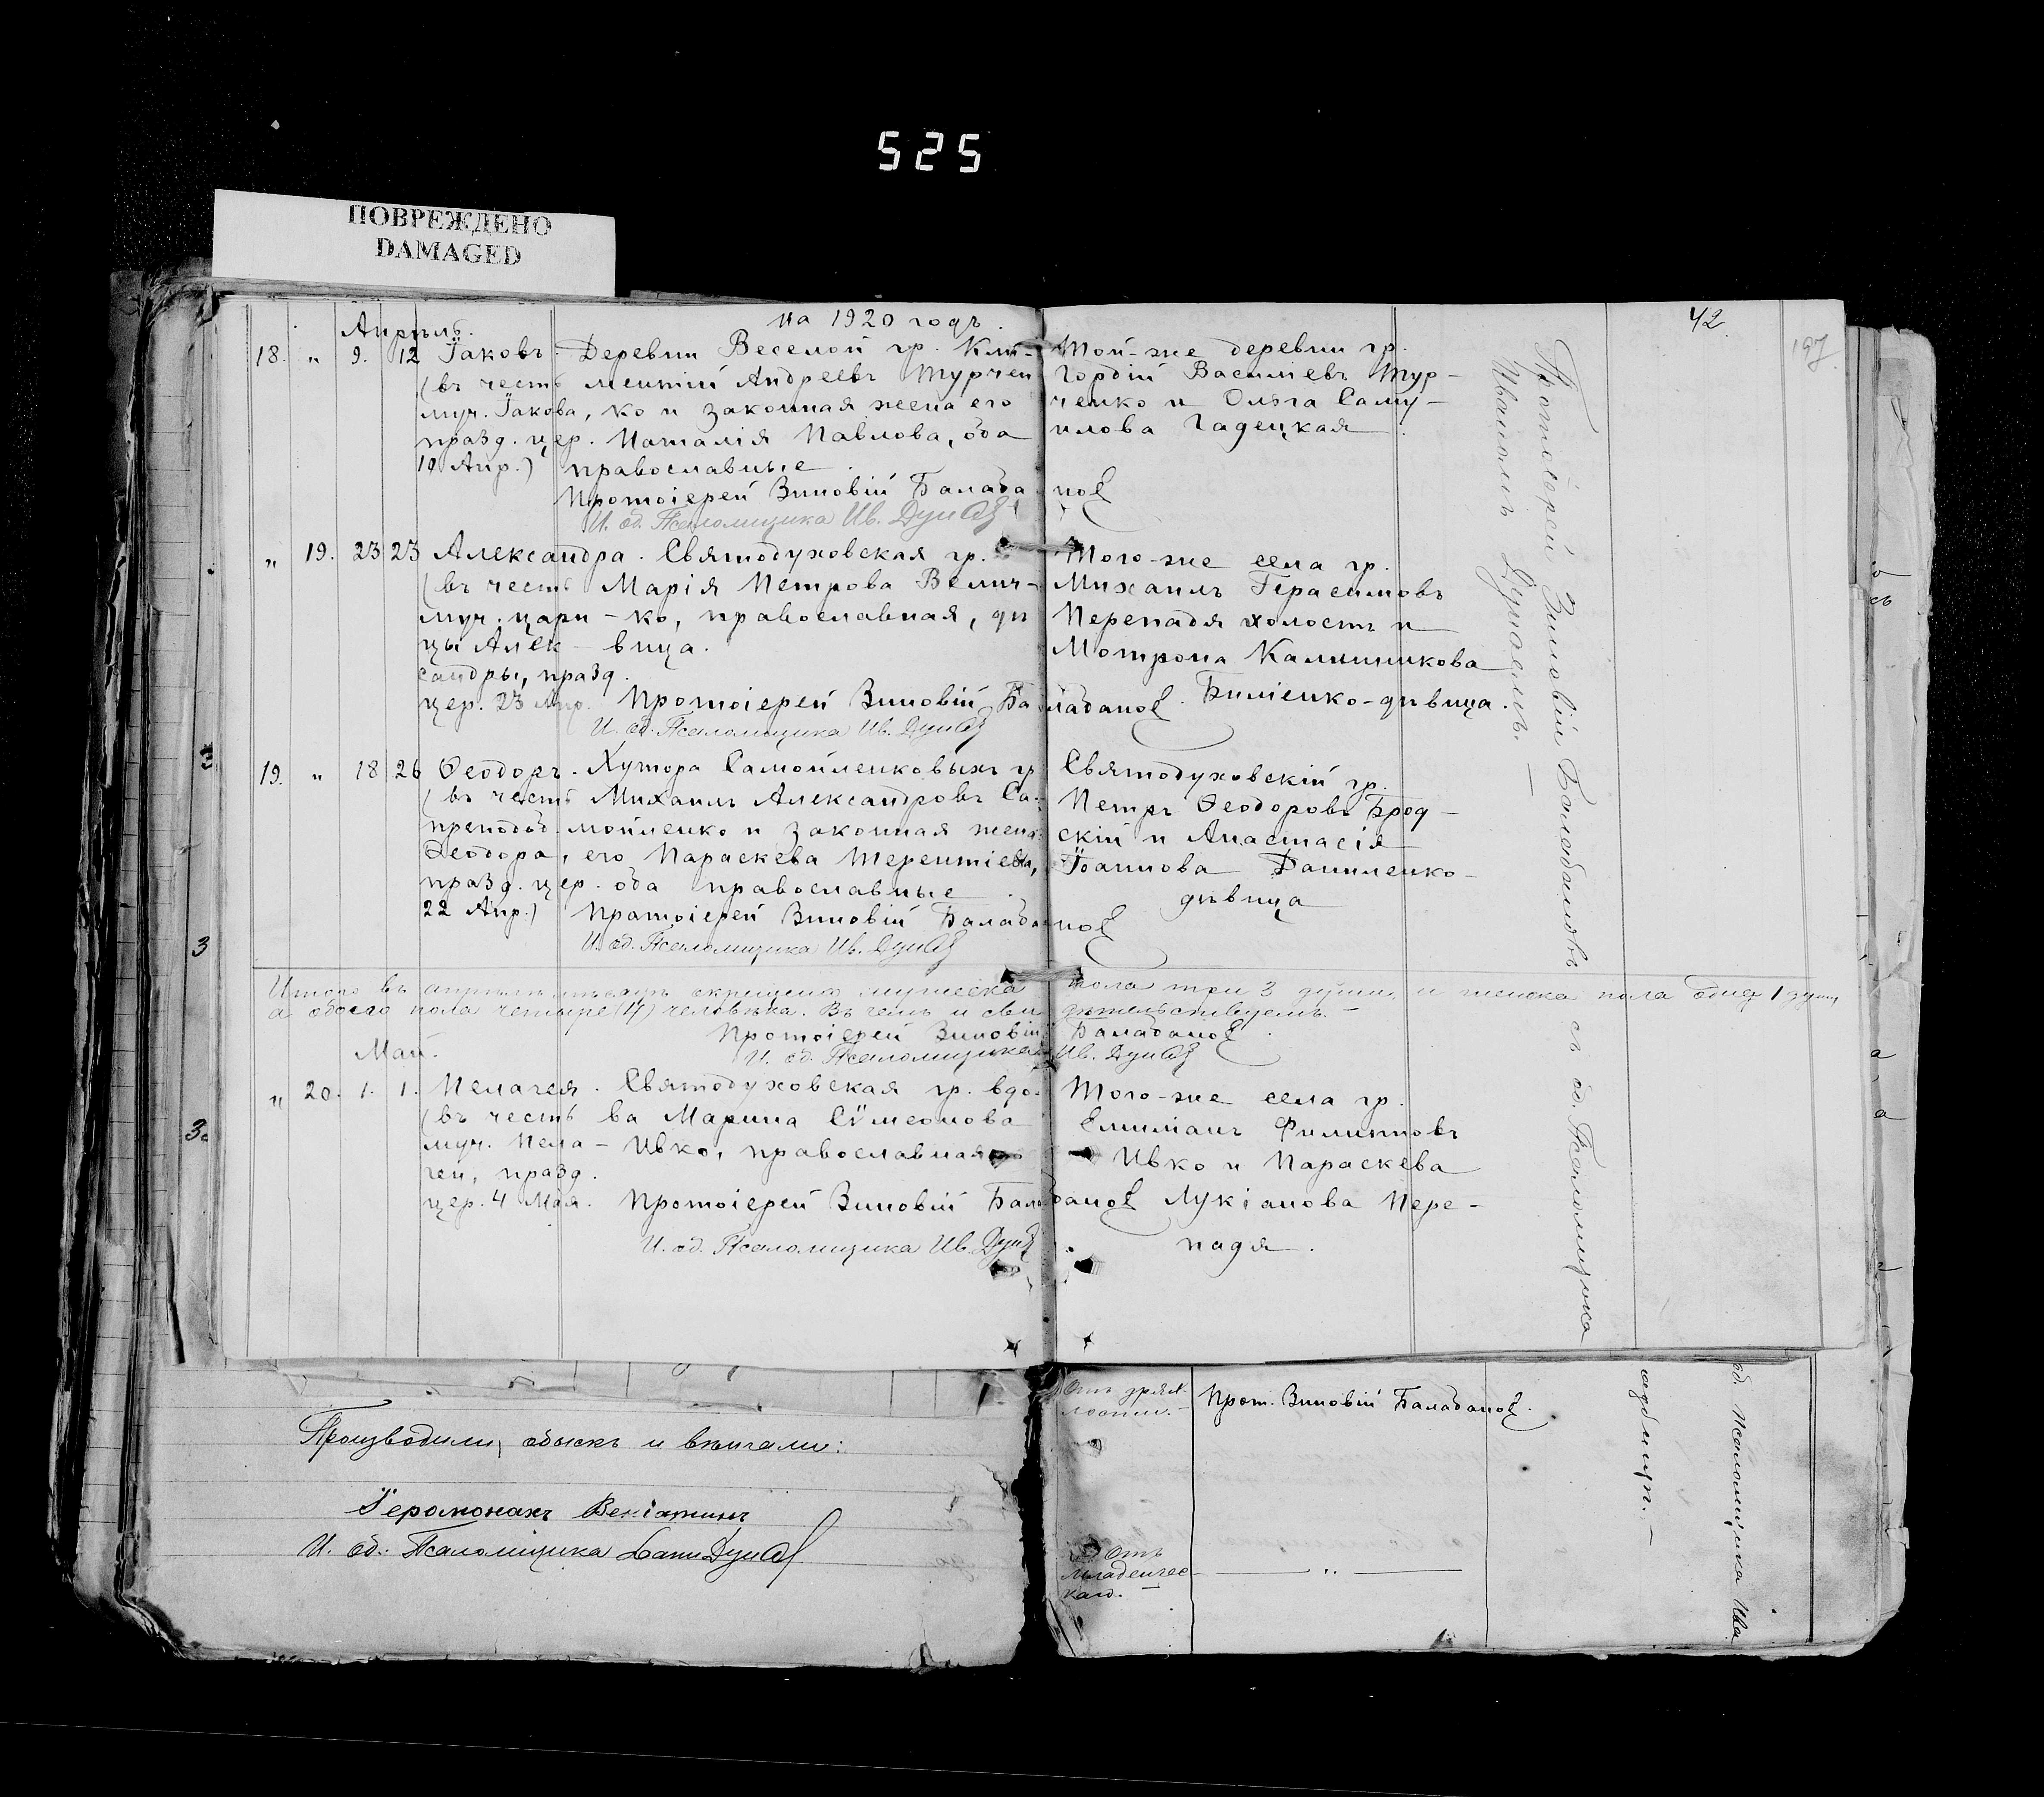 525
ПОВРЕЖДЕНО
DAMAGED
на 1920 годъ.
42
197
Апрѣль.
18. „ 9. 12 Іаковъ. Деревни Веселой гр. Кли-
(въ честь ментій Андреевъ Турчен
муч. Іакова, ко и законная жена его
празд. цер. Наталія Павлова, оба
10 Апр.) православные
Протоіерей Зиновій Баладановъ
И. об. Псаломщика Ив. Дуноль
Той-же деревни гр.
Гордій Васильевъ Тур-
ченко и Ольга Саму-
илова Гадецкая
„ 19. 23 23 Александра. Святодуховская гр.
(въ честь Марія Петрова Велич-
муч. цари- ко, православная, дѣ
цы Алек- вица.
сандры, празд.
цер. 23 Апр. Протоіерей Зиновій Баладановъ.
И. об. Псаломщика Ив. Дуноль
Того-же села гр.
Михаилъ Герасимовъ
Перепадя холостъ и
Мотрона Калинникова
Билiенко-дѣвица.
19. „ 18 26 Ѳеодоръ. Хутора Самойленковыхъ гр
(въ честь Михаилъ Александровъ Са-
преподоб. мойленко и законная жена
Ѳеодора, его Параскева Терентіева,
празд. цер. оба православные
22 Апр.) Протоіерей Зиновій Баладановъ
И. об. Псаломщика Ив. Дуноль
Святодуховскій гр.
Петръ Ѳеодоровъ Брод-
скій и Анастасія
Іоаннова Даниленко-
дѣвица
Итого въ апрѣлѣ мѣсяцѣ окрещено мужеска пола три 3 души, и женска пола одна 1 душа,
а обоего пола четыре (4) человѣка. Въ чемъ и свидѣтельствуемъ.—
Протоіерей Зиновій Баладановъ.
И. об. Псаломщика Ив. Дуноль
Май.
„ 20. 1. 1. Пелагея. Святодуховская гр. вдо-
(въ честь ва Марина Сѵмеонова
муч. Пела- Ивко, православная
геи, празд.
цер. 4 Мая. Протоіерей Зиновій Баладановъ
И. об. Псаломщика Ив. Дуноль
Того-же села гр.
Емиліанъ Филипповъ
Ивко и Параскева
Лукіанова Пере-
падя.
Протоіерей Зиновій Баладановъ и об. Псаломщика
Иванъ Дуноль.—
Производили обыскъ и вѣнчали:
Іеромонахъ Веніаминъ
И. об. Псаломщика
Отъ дрях-
лости.—
Прот. Зиновій Баладановъ.
Отъ
младенчес-
каго.—
об. Псаломщика Ива